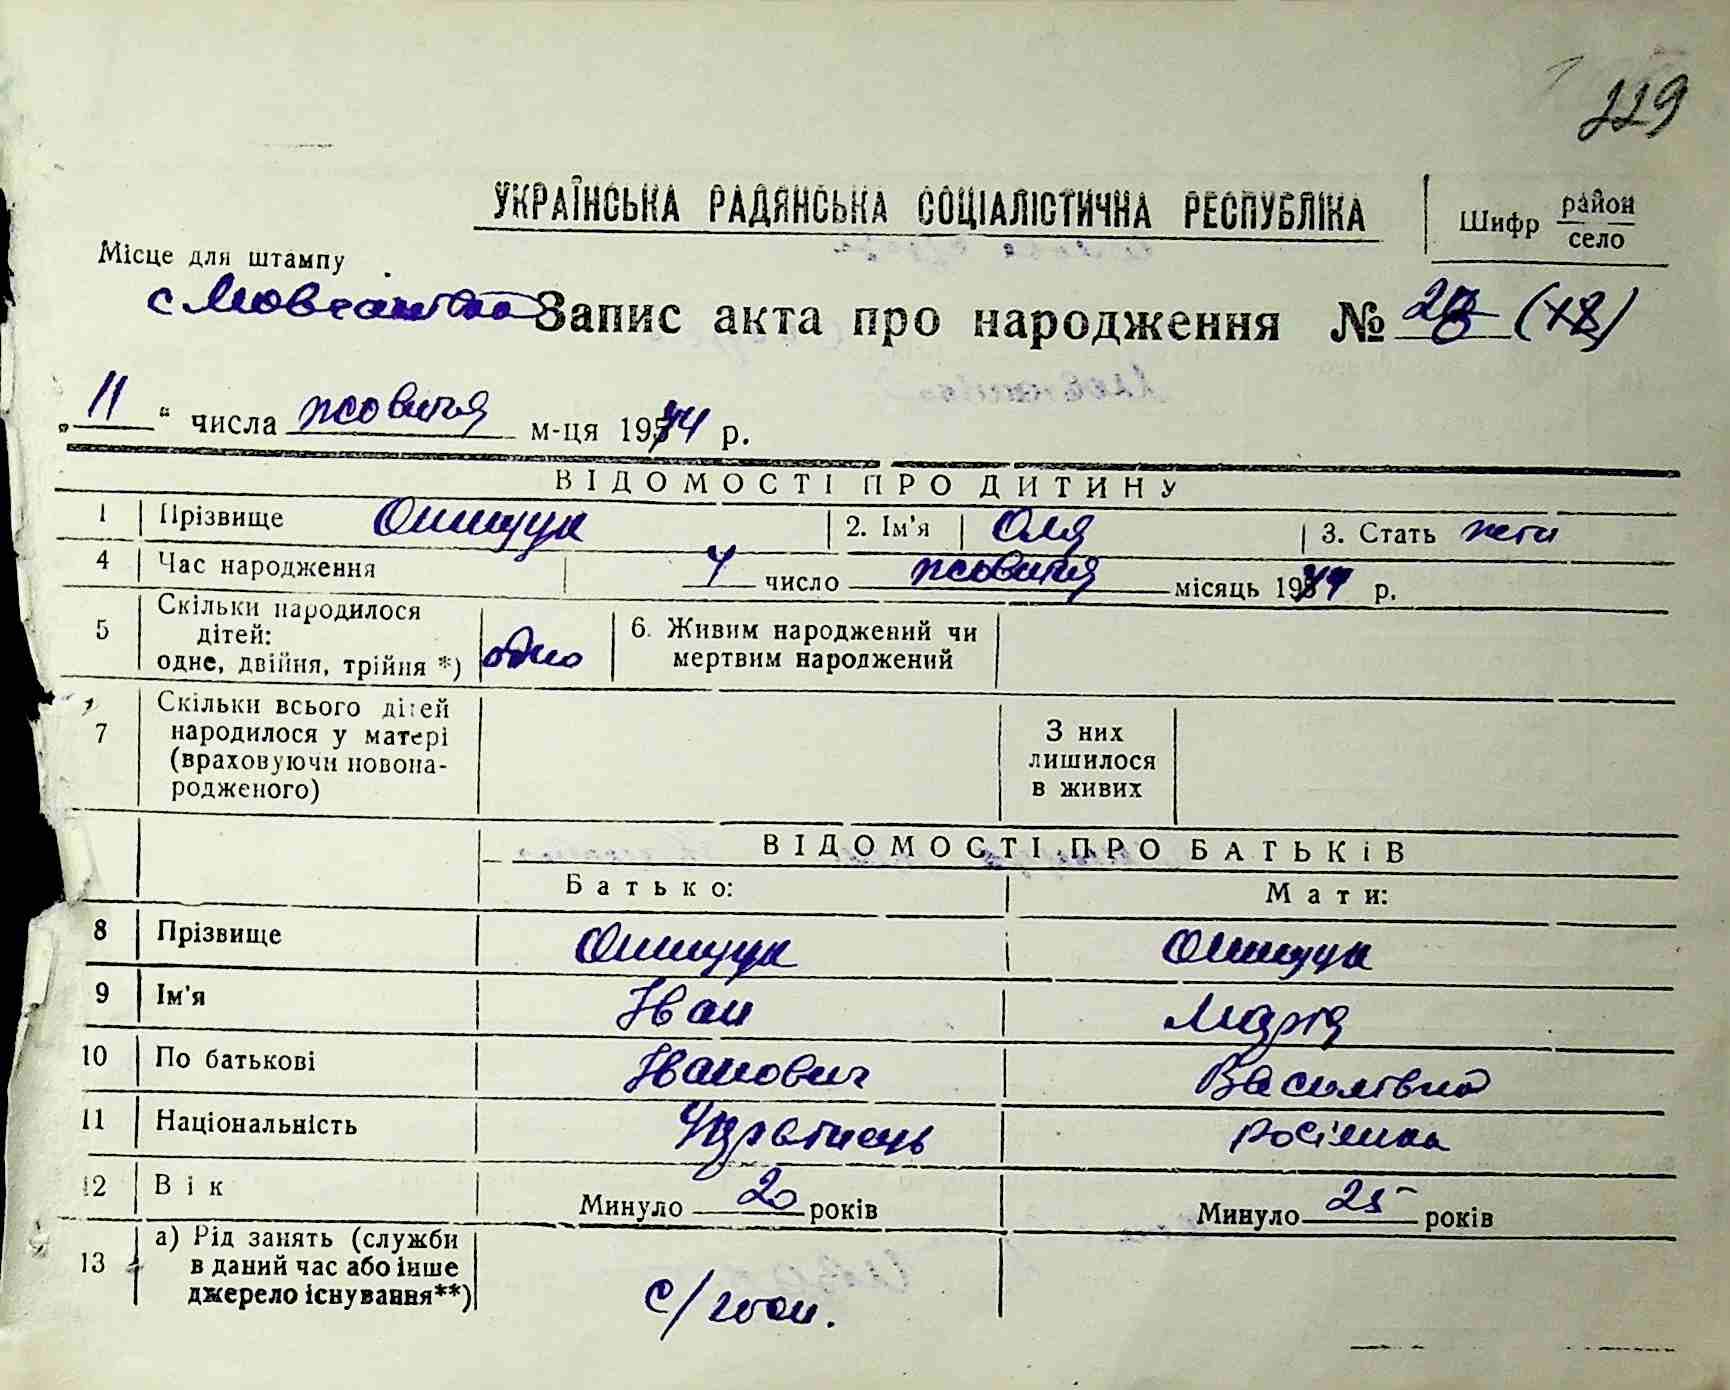 119
УКРАЇНСЬКА РАДЯНСЬКА СОЦІАЛІСТИЧНА РЕСПУБЛІКА
Шифр район
село
Місце для штампу
с
Запис акта про народження № (+8)
„ 11 “ числа жовтня м-ця 1944 р.
ВІДОМОСТІ ПРО ДИТИНУ
1 Прізвище Онищук 2. Ім'я Оля 3. Стать
4 Час народження 4 число жовтня місяць 1944 р.
5 Скільки народилося
дітей:
одне, двійня, трійня *) одно 6. Живим народжений чи
мертвим народжений
7 Скільки всього дітей
народилося у матері
(враховуючи новона-
родженого)
З них
лишилося
в живих
ВІДОМОСТІ ПРО БАТЬКІВ
Батько: Мати:
8 Прізвище Онищук Онищук
9 Ім'я Іван Марія
10 По батькові Іванович Василівна
11 Національність Українець росіянка
12 Вік Минуло 20 років Минуло 25 років
13 а) Рід занять (служби
в даний час або інше
джерело існування**)
с/госп.